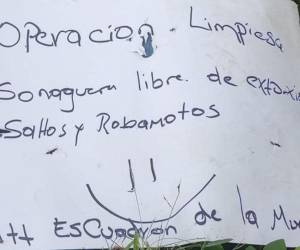 Operacion. Limpiesa
Sonaguera libre. de extorsio
Saltos y Robamotos
Att Escuadron de la Mu